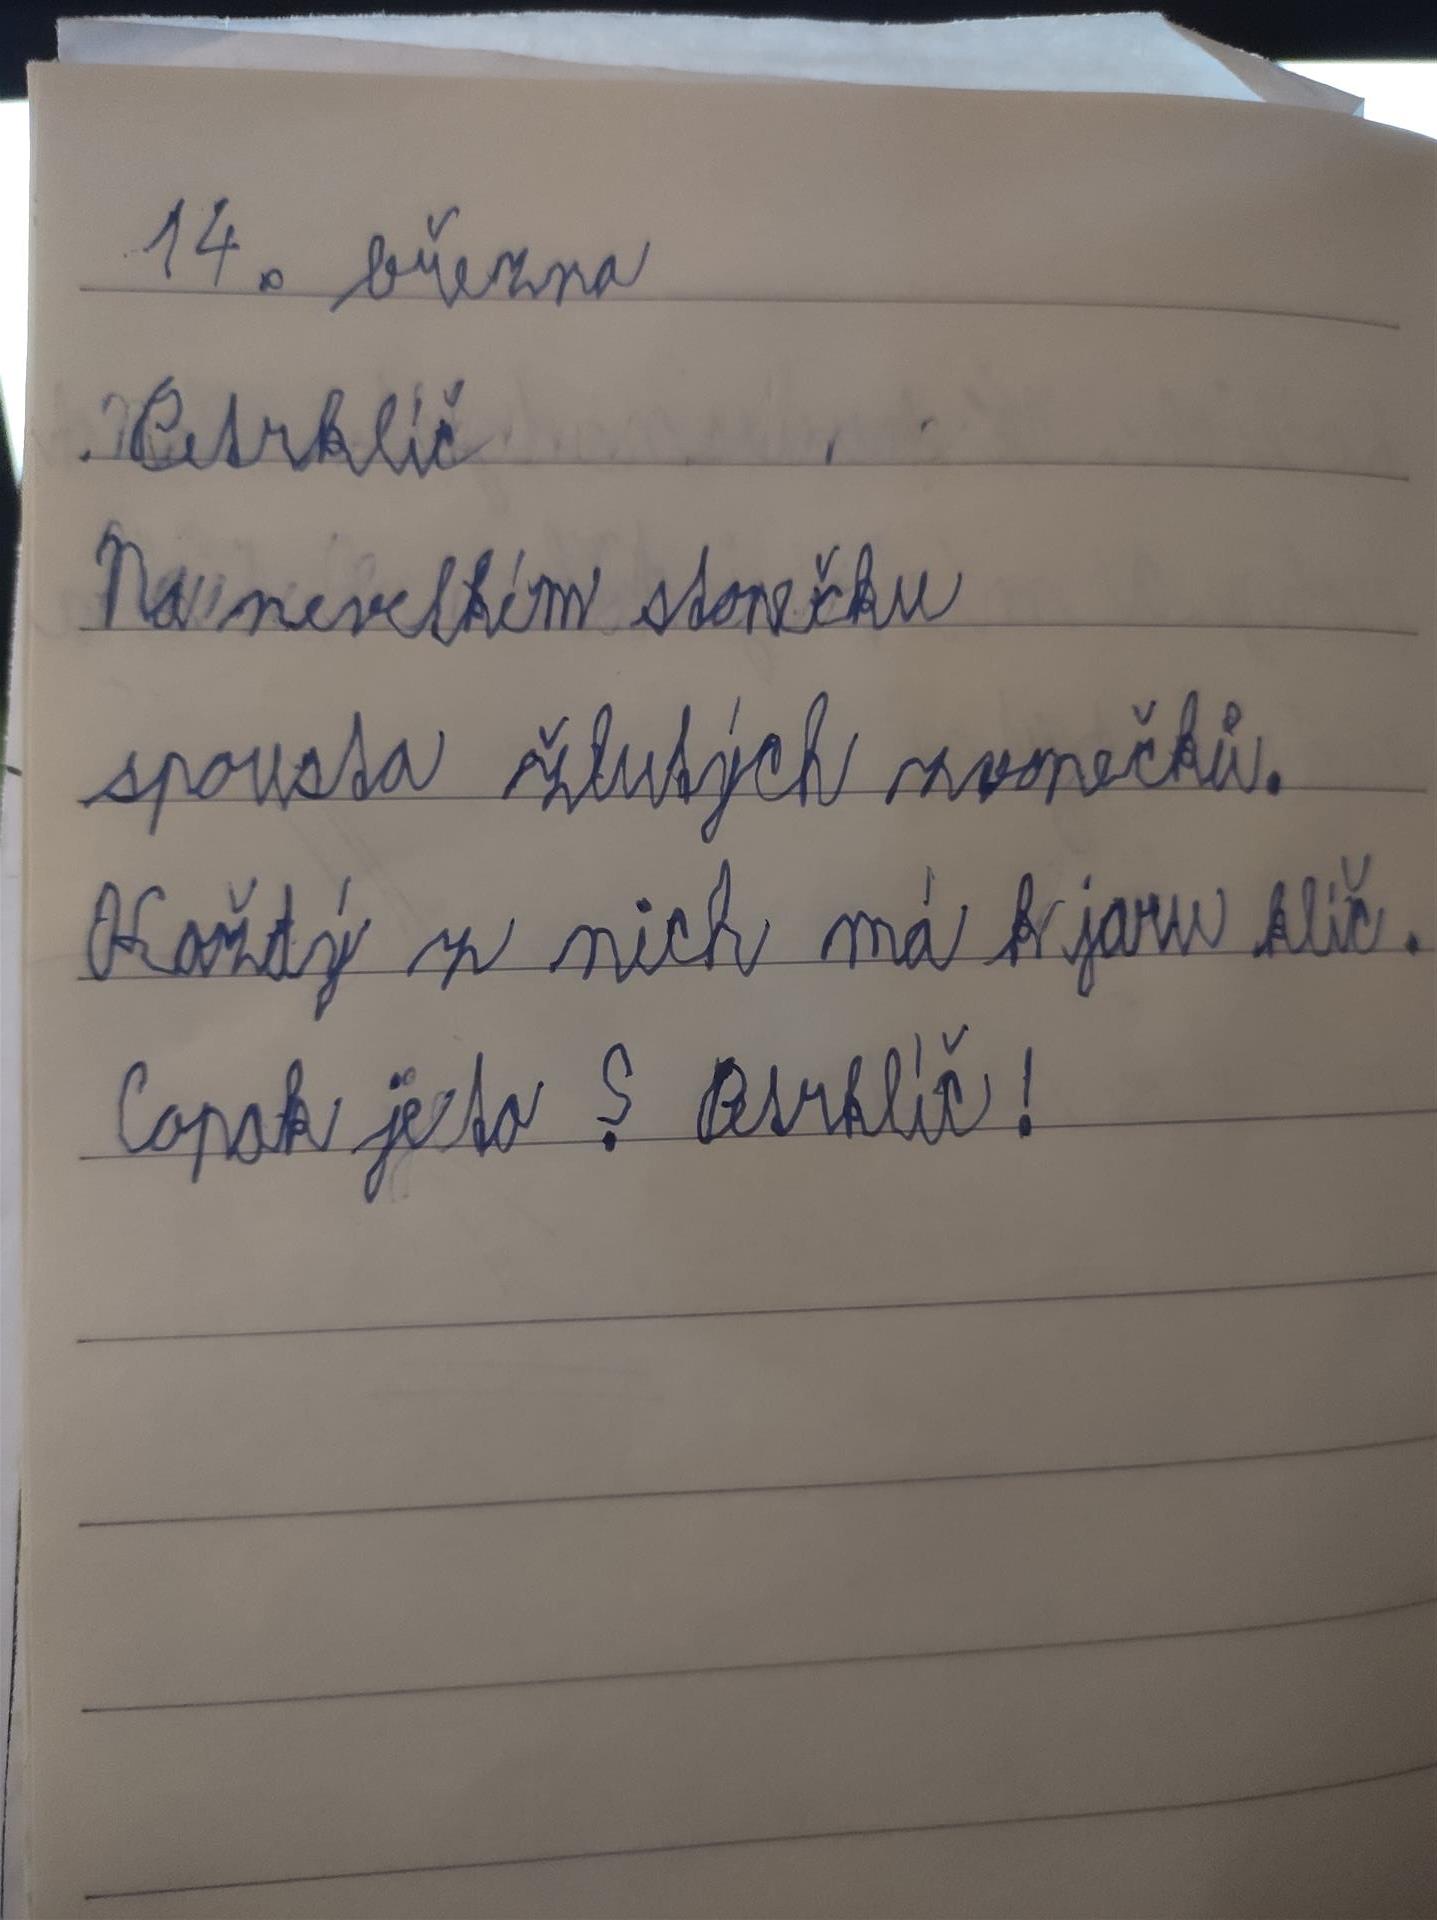 14. března
Petrklíč
Na nevelkém stonečku
spousta žlutých zvonečků.
Každý z nich má k jaru klíč.
Copak je to ? Petrklíč!